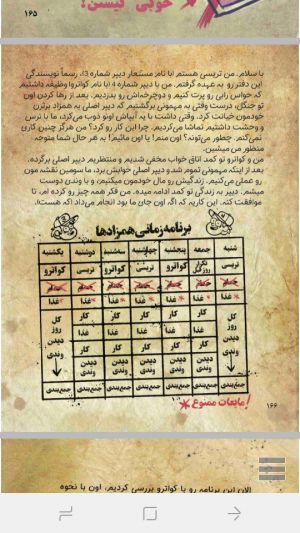 خوبی نیستن!
۱۶۵
با سلام. من تریسی هستم (با نام مستعار دیپر شماره ۳)، رسماً نویسندگی
این دفتر رو به عهده گرفتم. من با دیپر شماره ۴ (با نام کواترو) وظیفه داشتیم
که حواس رابی رو پرت کنیم و دوچرخه‌اش رو بدزدیم. بعد از رها کردن اون
تو جنگل، درست وقتی به مهمونی برگشتیم که دیپر اصلی به همزاد برترن
خودمون خیانت کرد. وقتی داشت با یه آبپاش اونو ذوب می‌کرد، ما با ترس
و وحشت داشتیم تماشا می‌کردیم. چرا این کار رو کرد؟ من هرگز چنین کاری
نمی‌کنم. چطور می‌تونه؟ اون منم! یا اون مائیم! به هر حال شما متوجه
منظور من میشین.
من و کواترو تو کمد اتاق خواب مخفی شدیم و منتظریم دیپر اصلی برگرده.
بعد از اینکه مهمونی تموم شد و دیپر اصلی خوابش برد، ما سومین نقشه مون
رو عملی می‌کنیم. زندگیش رو مال خودمون میکنیم، و با وندی دوست
میشم. دیپر به زندگی تو کمد ادامه میده. من فکر همه چیز رو کرده ام، تا
موافقت کنه. این کاریه که اگه اون جای ما بود انجام می‌داد (که هست!).
برنامه زمانی همزادها
شنبه جمعه پنجشنبه چهارشنبه سه‌شنبه دوشنبه یکشنبه
تریسی تکرار روز قبل کواترو تریسی کواترو تریسی کواترو
حمام حمام حمام حمام حمام حمام حمام
غذا غذا غذا غذا غذا غذا غذا
کل روز دیدن وندی کار کار کار کار کار کل روز دیدن وندی
غذا غذا غذا غذا غذا
کار کار کار کار کار
دیدن وندی دیدن وندی دیدن وندی دیدن وندی دیدن وندی
جمع‌بندی جمع‌بندی جمع‌بندی جمع‌بندی جمع‌بندی جمع‌بندی جمع‌بندی
مایعات ممنوع!
۱۶۶
الان این برنامه رو با کواترو بررسی کردیم. اون با نحوه